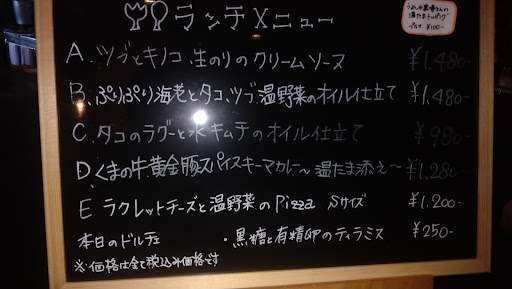 ランチメニュー
温たまトッピング
プラス ¥100-
A、ツブとキノコ、生のりのクリームソース ¥1,480-
B、ぷりぷり海老とタコ、ツブ、温野菜のオイル仕立て ¥1,480-
C、タコのラグーと水キムチのオイル仕立て ¥980-
D、くまの牛、黄金豚スパイスキーマカレー〜温たま添え〜 ¥1,280-
E ラクレットチーズと温野菜のPizza Sサイズ ¥1,200-
本日のドルチェ ・黒糖と有精卵のティラミス ¥250-
※価格は全て税込み価格です